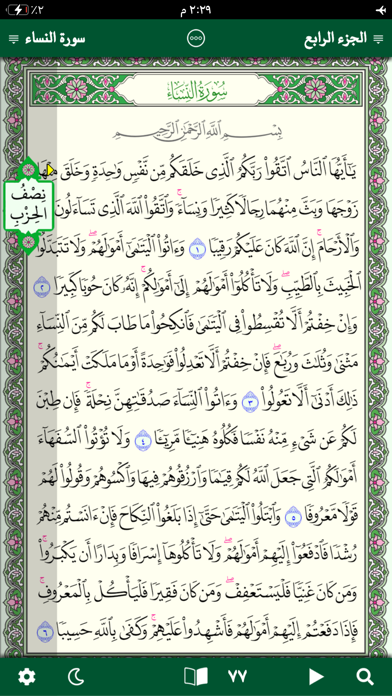 ٪٢ ٢:٢٩ م
الجزء الرابع سورة النساء
سُورَةُ النِّسَاءِ
بِسْمِ ٱللَّهِ ٱلرَّحْمَٰنِ ٱلرَّحِيمِ
يَٰٓأَيُّهَا ٱلنَّاسُ ٱتَّقُوا۟ رَبَّكُمُ ٱلَّذِى خَلَقَكُم مِّن نَّفْسٍ وَٰحِدَةٍ وَخَلَقَ مِنْهَا
زَوْجَهَا وَبَثَّ مِنْهُمَا رِجَالًا كَثِيرًا وَنِسَآءً ۚ وَٱتَّقُوا۟ ٱللَّهَ ٱلَّذِى تَسَآءَلُونَ
نِصْفُ
الحِزْبِ
وَٱلْأَرْحَامَ ۚ إِنَّ ٱللَّهَ كَانَ عَلَيْكُمْ رَقِيبًا ١ وَءَاتُوا۟ ٱلْيَتَٰمَىٰٓ أَمْوَٰلَهُمْ ۖ وَلَا تَتَبَدَّلُوا۟
ٱلْخَبِيثَ بِٱلطَّيِّبِ ۖ وَلَا تَأْكُلُوٓا۟ أَمْوَٰلَهُمْ إِلَىٰٓ أَمْوَٰلِكُمْ ۚ إِنَّهُۥ كَانَ حُوبًا كَبِيرًا ٢
وَإِنْ خِفْتُمْ أَلَّا تُقْسِطُوا۟ فِى ٱلْيَتَٰمَىٰ فَٱنكِحُوا۟ مَا طَابَ لَكُم مِّنَ ٱلنِّسَآءِ
مَثْنَىٰ وَثُلَٰثَ وَرُبَٰعَ ۖ فَإِنْ خِفْتُمْ أَلَّا تَعْدِلُوا۟ فَوَٰحِدَةً أَوْ مَا مَلَكَتْ أَيْمَٰنُكُمْ ۚ
ذَٰلِكَ أَدْنَىٰٓ أَلَّا تَعُولُوا۟ ٣ وَءَاتُوا۟ ٱلنِّسَآءَ صَدُقَٰتِهِنَّ نِحْلَةً ۚ فَإِن طِبْنَ
لَكُمْ عَن شَىْءٍ مِّنْهُ نَفْسًا فَكُلُوهُ هَنِيٓـًٔا مَّرِيٓـًٔا ٤ وَلَا تُؤْتُوا۟ ٱلسُّفَهَآءَ
أَمْوَٰلَكُمُ ٱلَّتِى جَعَلَ ٱللَّهُ لَكُمْ قِيَٰمًا وَٱرْزُقُوهُمْ فِيهَا وَٱكْسُوهُمْ وَقُولُوا۟ لَهُمْ
قَوْلًا مَّعْرُوفًا ٥ وَٱبْتَلُوا۟ ٱلْيَتَٰمَىٰ حَتَّىٰٓ إِذَا بَلَغُوا۟ ٱلنِّكَاحَ فَإِنْ ءَانَسْتُم مِّنْهُمْ
رُشْدًا فَٱدْفَعُوٓا۟ إِلَيْهِمْ أَمْوَٰلَهُمْ ۖ وَلَا تَأْكُلُوهَآ إِسْرَافًا وَبِدَارًا أَن يَكْبَرُوا۟ ۚ
وَمَن كَانَ غَنِيًّا فَلْيَسْتَعْفِفْ ۖ وَمَن كَانَ فَقِيرًا فَلْيَأْكُلْ بِٱلْمَعْرُوفِ ۚ
فَإِذَا دَفَعْتُمْ إِلَيْهِمْ أَمْوَٰلَهُمْ فَأَشْهِدُوا۟ عَلَيْهِمْ ۚ وَكَفَىٰ بِٱللَّهِ حَسِيبًا ٦
٧٧